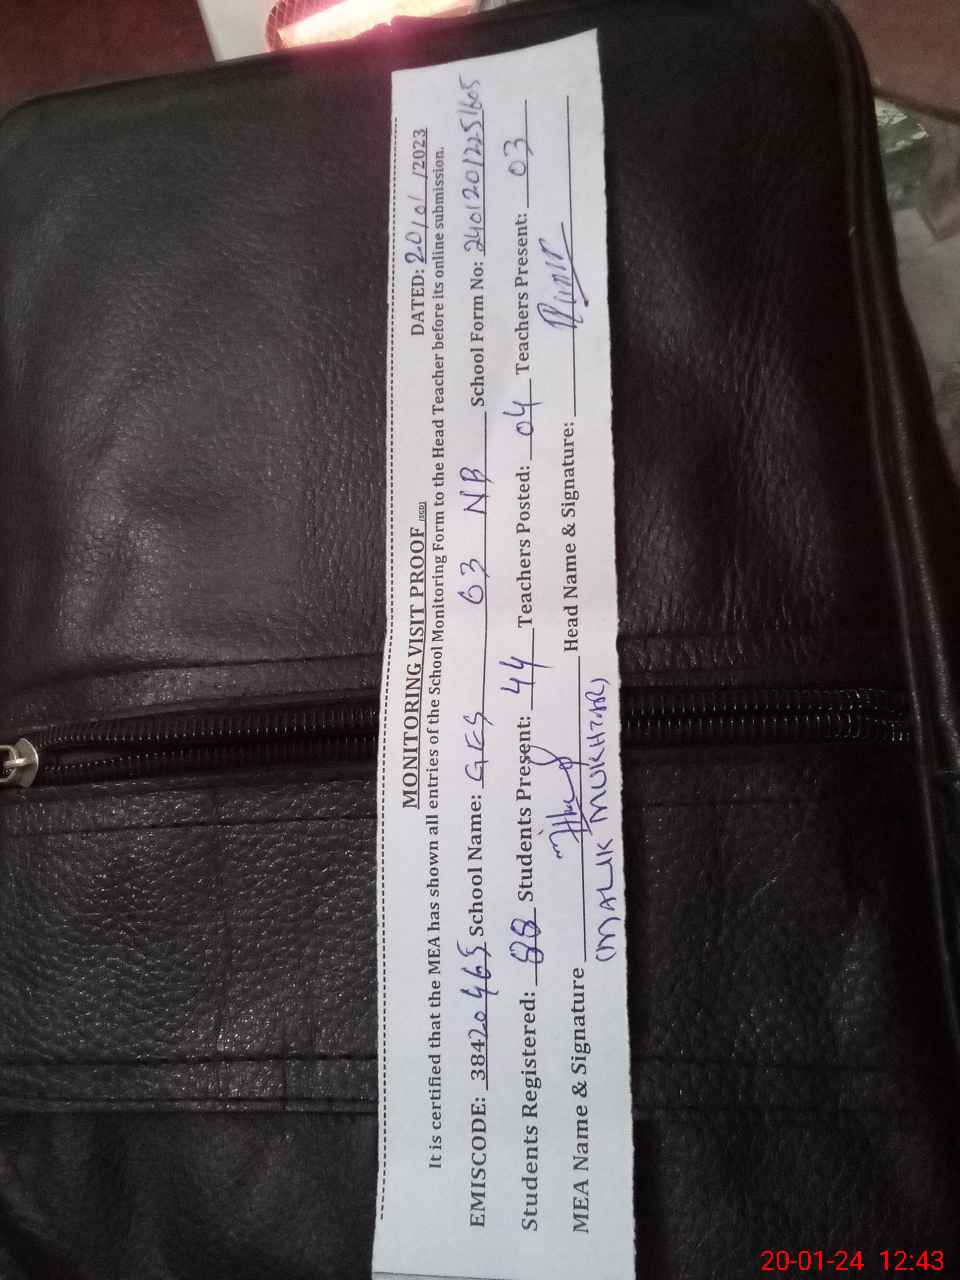 MONITORING VISIT PROOF (SED)
DATED: 20/01/2023
It is certified that the MEA has shown all entries of the School Monitoring Form to the Head Teacher before its online submission.
EMISCODE: 38420465 School Name: GES 63 NB School Form No: 240120122251605
Students Registered: 88 Students Present: 44 Teachers Posted: 04 Teachers Present: 03
MEA Name & Signature Head Name & Signature:
(MALIK MUKHTAR)
20-01-24 12:43